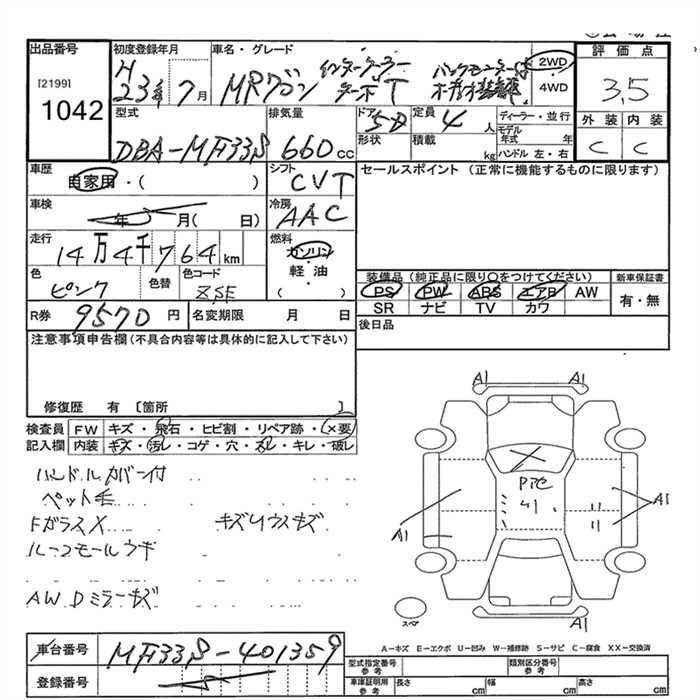 出品番号 初度登録年月 車名・グレード 評価点
[2199]
1042
H 23年 7月 MRワゴン インタークーラーターボ T バックモニター付 2WD 4WD 3,5
型式 排気量 ドア 形状 定員 積載 ディーラー・並行 モデル年式 年 ハンドル 左・右 外装 内装
DBA-MF33S 660 cc 5D 4人 kg C C
車歴 自家用・( ) シフト CVT セールスポイント (正常に機能するものに限ります)
車検 年 月( 日) 冷房 AAC
走行 14万4千764km 燃料 ガソリン・軽油 ( )
色 ピンク 色替 色コード ZSE
装備品 (純正品に限り〇をつけてください) 新車保証書
PS PW ABS エアB AW 有・無
SR ナビ TV カワ
R券 9570円 名変期限 月 日 後日品
注意事項申告欄(不具合内容等は具体的に記入して下さい)
修復歴 有 〔箇所 〕
検査員記入欄 FW キズ・飛石・ヒビ割・リペア跡・×要
内装 キズ・汚レ・コゲ・穴・スレ・キレ・破レ
ハンドルカバー付
ペット毛
Fガラス X キズリウスキズ
ルーフモールウキ
AW Dミラーキズ
A1 A1
A1 A1
A1
スペア
A-キズ E-エクボ U-凹み W-補修跡 S-サビ C-腐食 XX-交換済
車台番号 MF33S-401359
登録番号
型式指定番号 参考 類別区分番号 参考
車庫証明用 参考 長さ cm 幅 cm 高さ cm